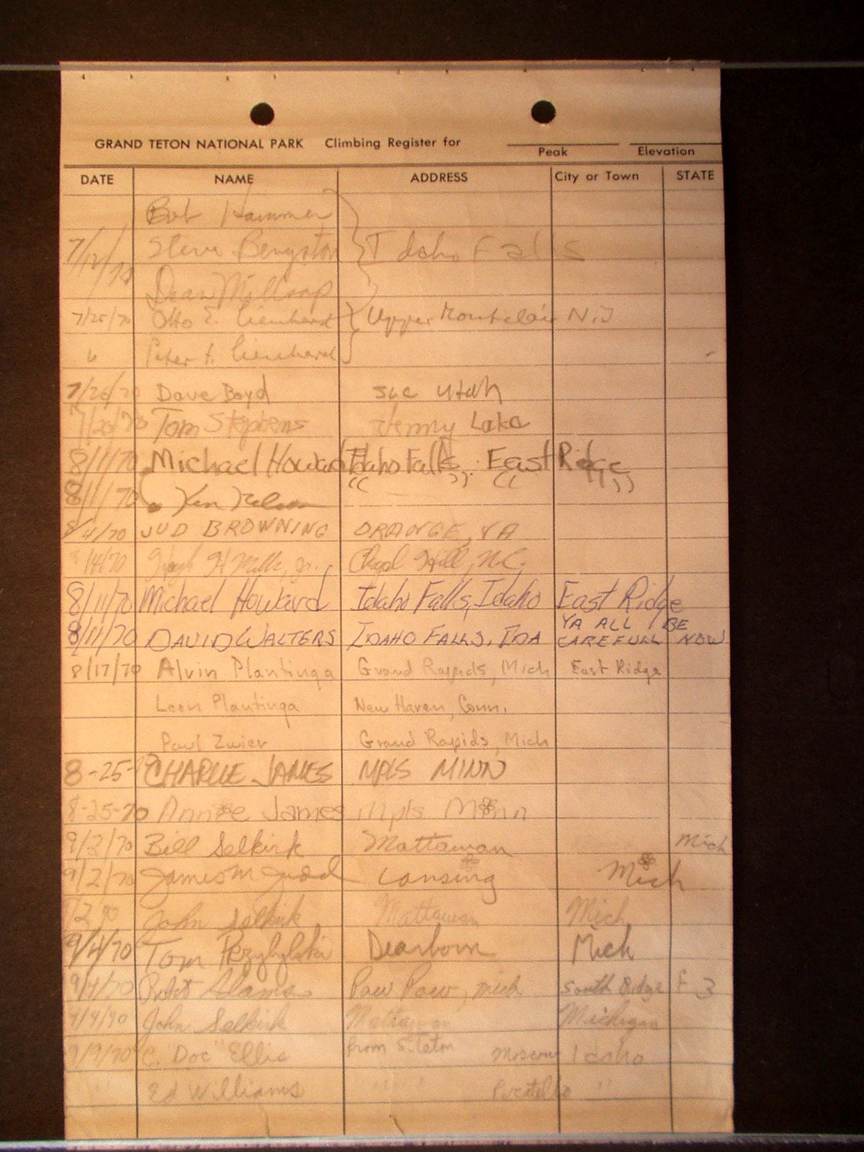 GRAND TETON NATIONAL PARK Climbing Register for
Peak Elevation
DATE NAME ADDRESS City or Town STATE
Bob Hammer
7/12/70 Steve Bengston } Idaho Falls
Dean Millsap
7/25/70 Otto E. Lienhard } Upper Montclair NJ
" Peter F. Lienhard
7/26/70 Dave Boyd SLC Utah
7/28/70 Tom Stephens Jenny Lake
8/11/70 Michael Howard Idaho Falls East Ridge
8/11/70 Ken Nelson " " " "
8/4/70 JUD BROWNING ORANGE, VA
8/14/70 Hugh H Mills, Jr. Chapel Hill, NC
8/11/70 Michael Howard Idaho Falls, Idaho East Ridge
YA ALL BE
8/11/70 DAVID WALTERS IDAHO FALLS, IDA CAREFULL NOW
8/17/70 Alvin Plantinga Grand Rapids, Mich East Ridge
Leon Plantinga New Haven, Conn.
Paul Zwier Grand Rapids, Mich
8-25-70 CHARLIE JAMES MPLS MINN
8-25-70 Annie James Mpls Minn
9/2/70 Bill Selkirk Mattawan Mich
9/2/70 James M Judd Lansing Mich
John Selkirk Mattawan Mich
9/4/70 Tom Przybylski Dearborn Mich
9/4/70 Adams Paw Paw, Mich South Ridge F 3
9/4/70 John Selkirk Mattawan Michigan
9/9/70 C. "Doc" Ellis from S. Teton Moscow Idaho
" Ed Williams " " Pocatello "